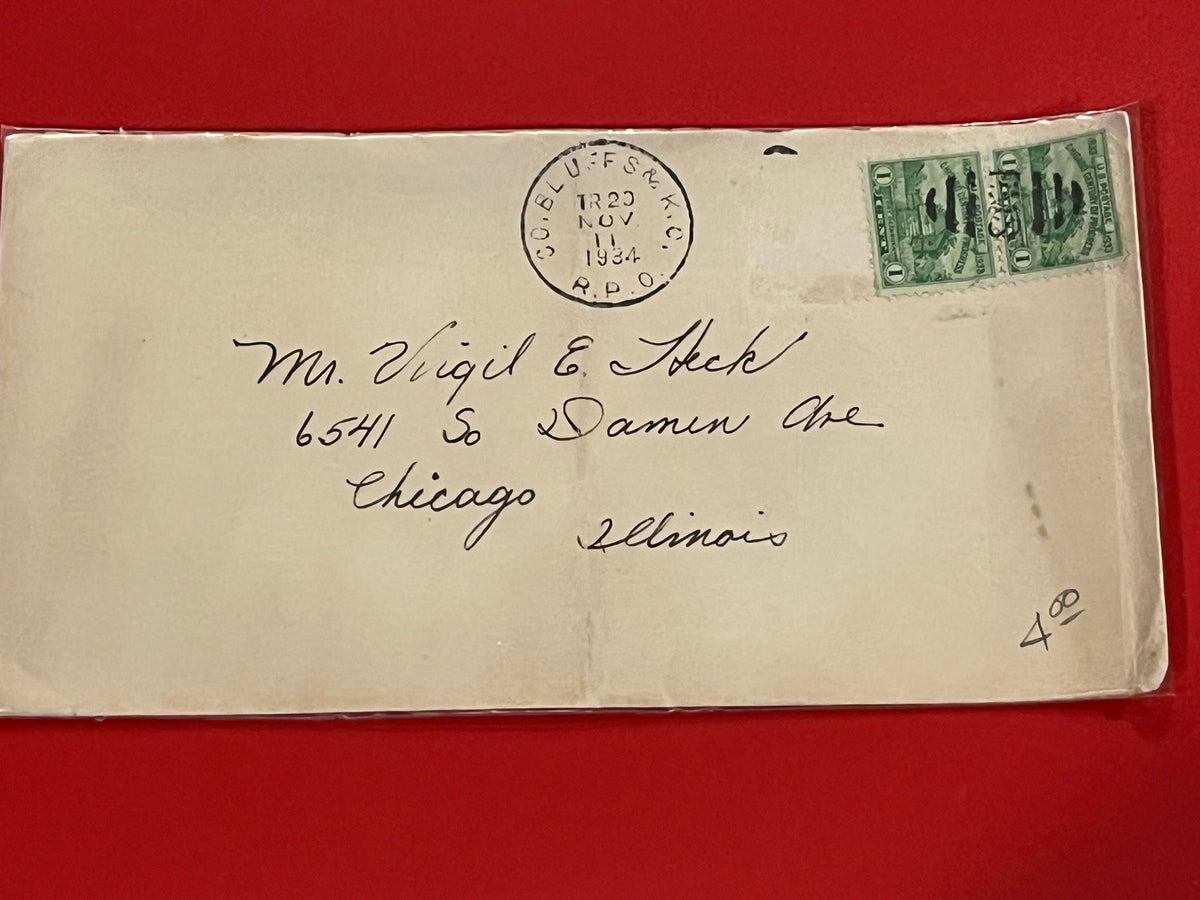 CO. BLUFFS & K. C.
TR 20
NOV
11
1934
R.P.O.
1
1
U.S. POSTAGE 1933
1
1
Mr. Virgil E. Heck
6541 So Damen Ave
Chicago
Illinois
4 00